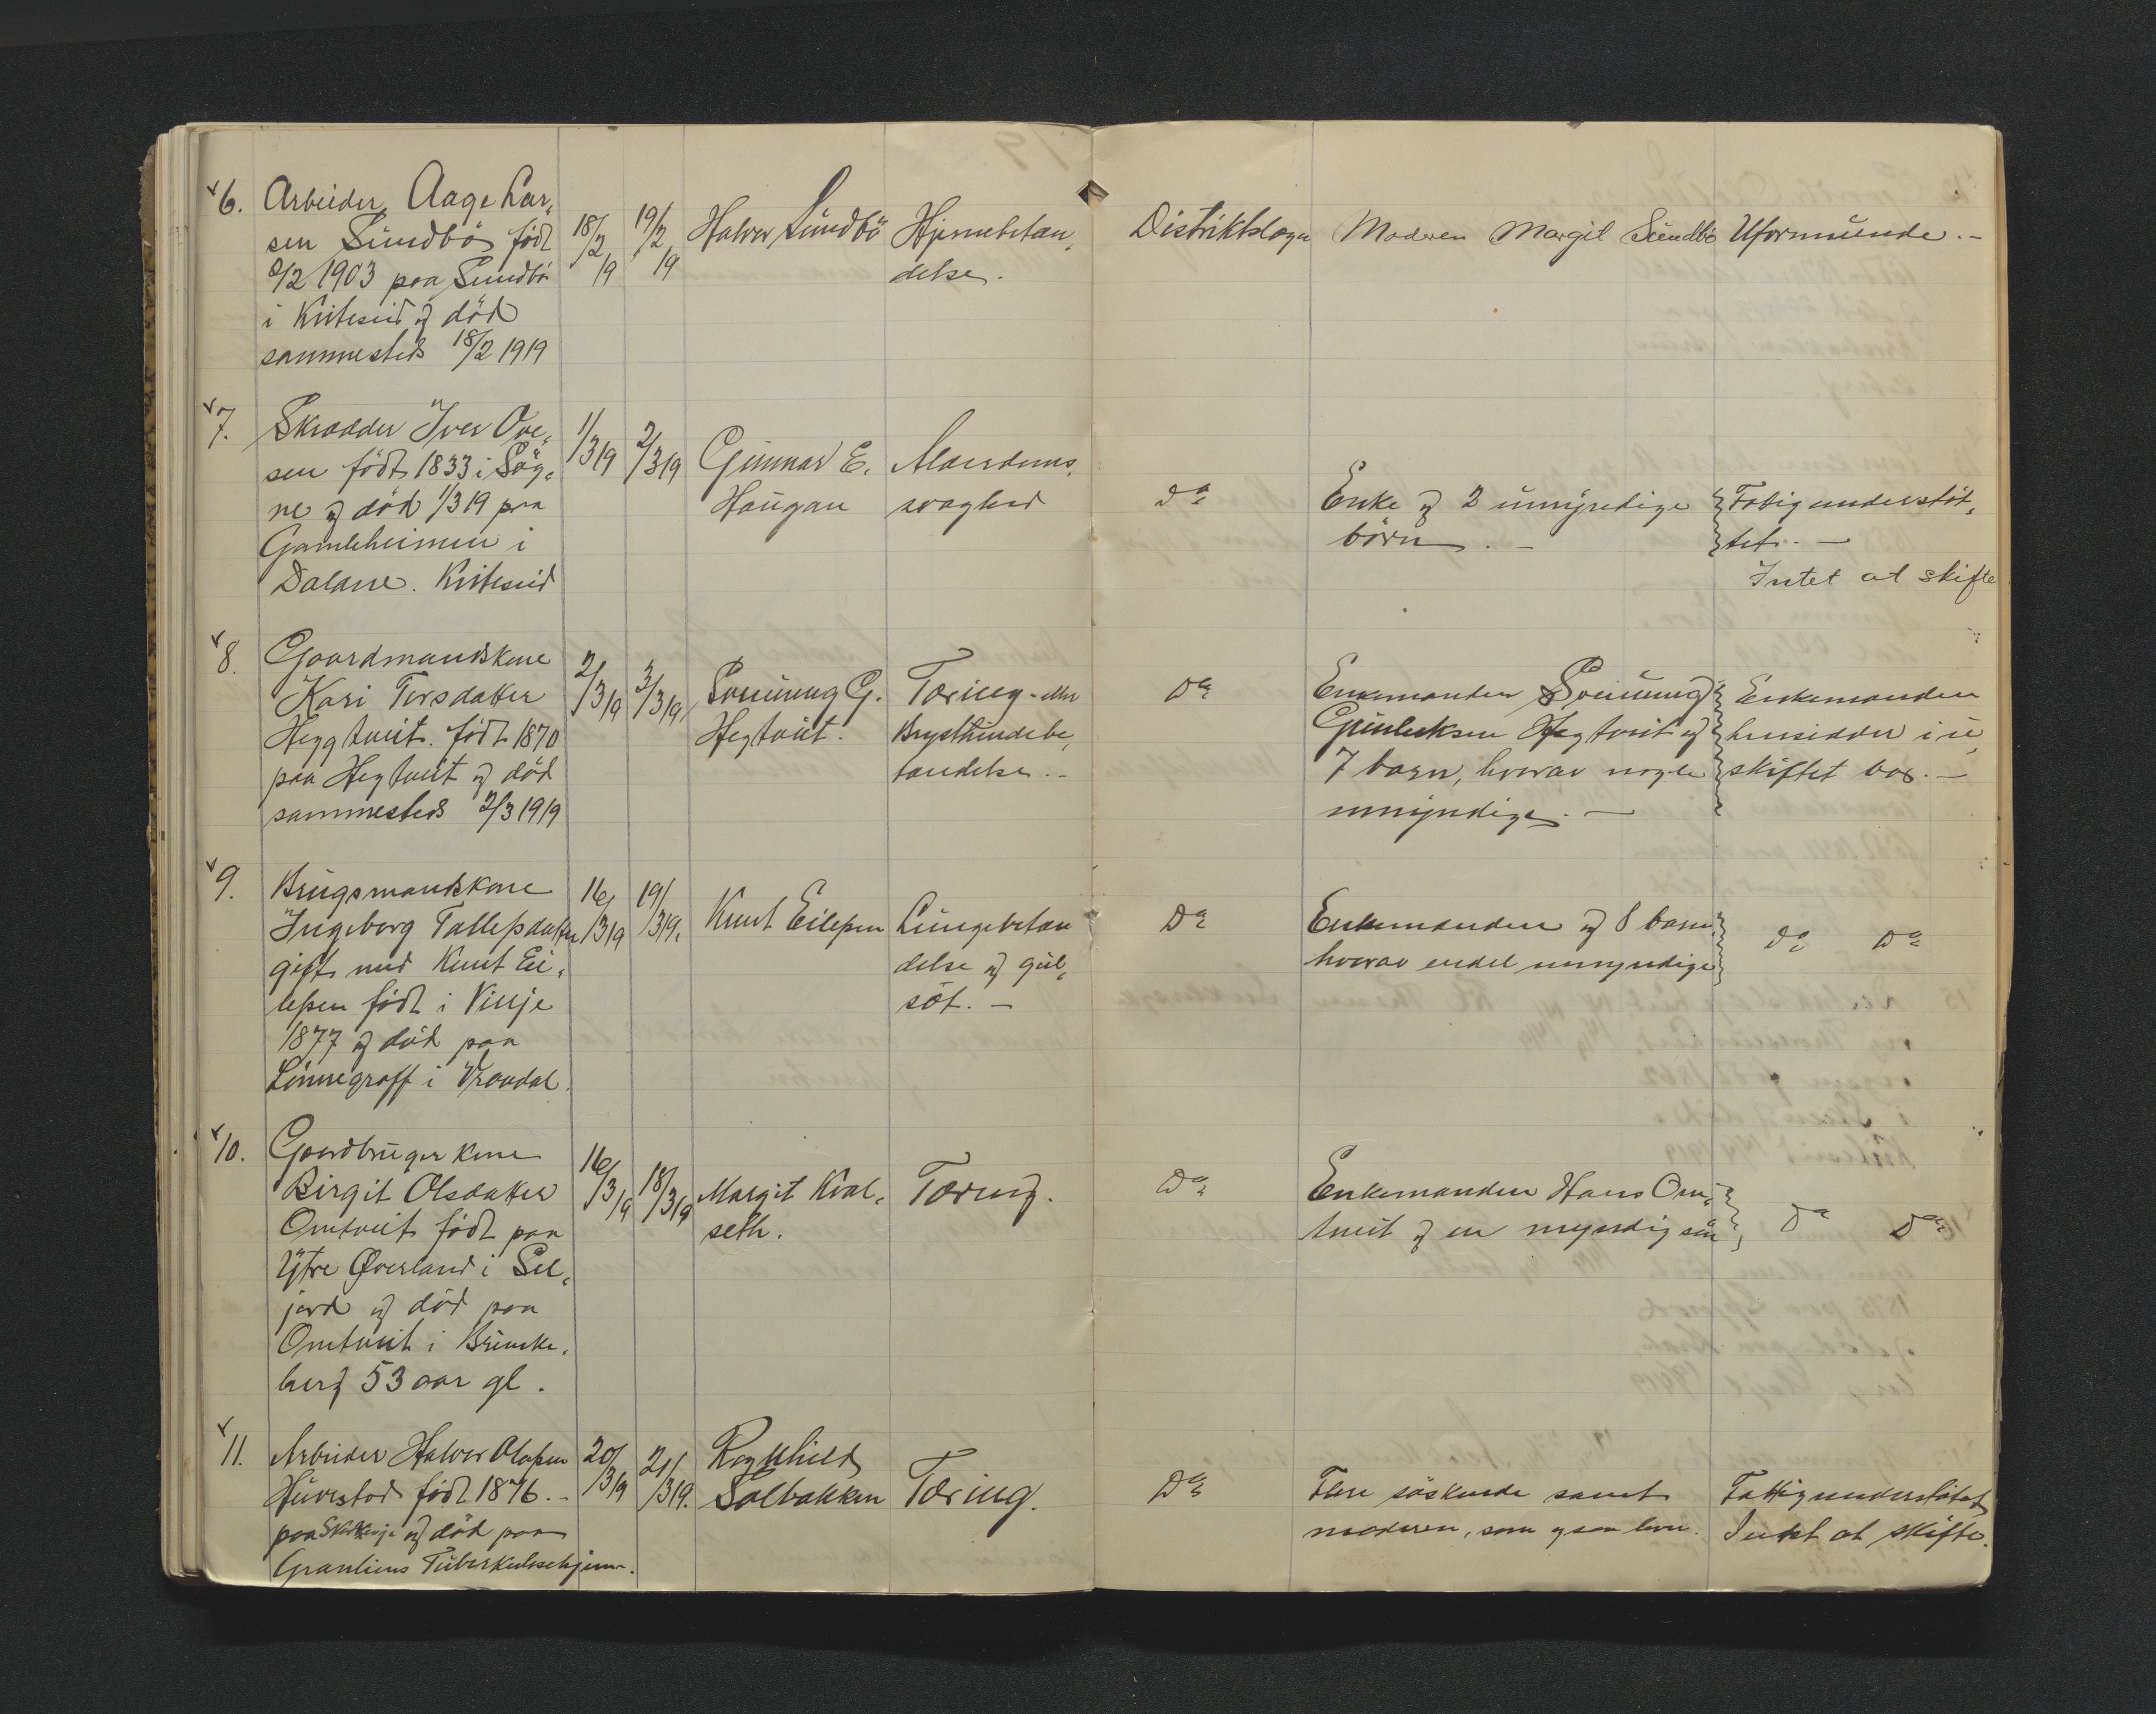 6. Arbeider Aage Lar-
sen Sundbö född
2/2 1903 paa Sundbö
i Kviteseid og död
sammesteds 18/2 1919
18/2 19
19/2 19
Halvor Sundbö
Hjernebetæn-
delse.
Distriktslægen
Moderen Margit Sundbö
Uformuende.-
7. Skrædder Iver Ove-
sen födt 1833 i Sög-
ne og död 1/3 19 paa
Gamleheimen i
Dalane. Kviteseid
1/3 19
2/3 19
Gunnar E.
Haugan
Alderdoms
svaghed
Do
Enke og 2 umyndige
börn. -
Fatigunderstöt-
tet. -
Intet at skifte
8. Gaardmandskone
Kari Torsdatter
Heggtveit. födt 1870
paa Hegtveit og död
sammesteds 2/3 1919
2/3 19
3/3 19
Sveinung G.
Hegtveit.
Tæring - eller
Brysthindebe-
tændelse. -
Do
Enkemanden Sveinung
Gunleiksen Hegtveit og
7 barn, hvorav nogle
umyndige. -
Enkemanden
hensidder i u-
skiftet bo. -
9. Brugsmandskone
Ingeborg Tallefsdatter
gift med Knut Ei-
lefsen födt i Vinje
1877 og död paa
Lönnegraff i Vraadal.
16/3 19
19/3 19.
Knut Eilefsen
Lungebetæn
delse og gul-
söt. -
Do
Enkemanden og 8 barn
hvorav endel umyndige
Do Do
10. Gaardbruger kone
Birgit Olsdatter
Omtveit födt paa
Ytre Øverland i Sel-
jord og död paa
Omtveit i Brunke-
berg 53 aar gl.
16/3 19
18/3 19
Margit Kval-
seth.
Tæring.
Do
Enkemanden Hans Om-
tveit og en myndig sön
Do Do
11. Arbeider Halvor Olafsen
Huvestad födt 1876. -
paa og död paa
Granliens Tuberkulosehjem.
20/3 19
21/3 19.
Ragnhild
Solbakken
Tæring.
Do
Flere söskende samt
moderen, som ogsaa lever.
Fattigunderstöttet
Intet at skifte.